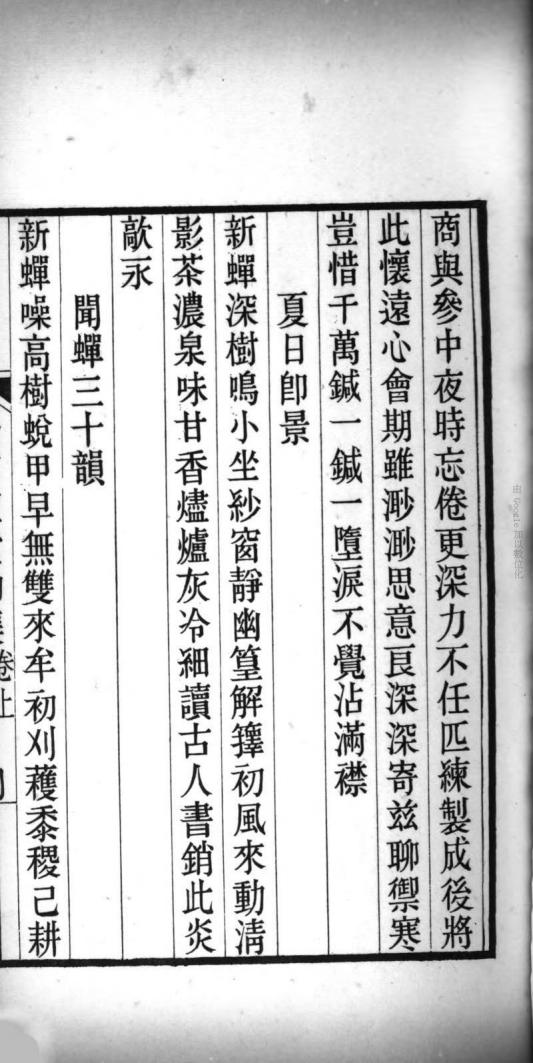 商與參中夜時忘倦更深力不任匹練製成後將
此懷遠心會期雖渺渺思意良深深寄兹聊禦寒
豈惜千萬鍼一鍼一墮淚不覺沾滿襟
夏日卽景
新蟬深樹鳴小坐紗窗靜幽篁解籜初風來動清
影茶濃泉味甘香燼爐灰冷細讀古人書銷此炎
歊永
聞蟬三十韻
新蟬噪高樹蛻甲早無雙來牟初刈蔉黍稷己耕
卷上
由 Google 加以數位化